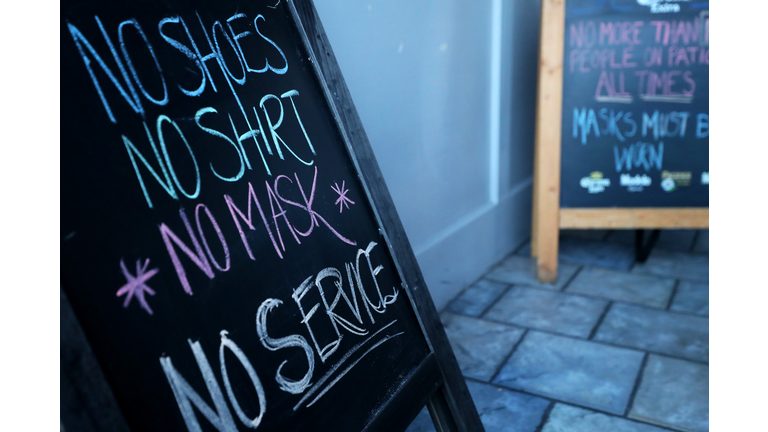 NO SHOES
NO SHIRT
* NO MASK *
NO SERVICE
Extra
NO MORE THAN
PEOPLE ON PATIO
ALL TIMES
MASKS MUST BE
WORN
Corona
Modelo